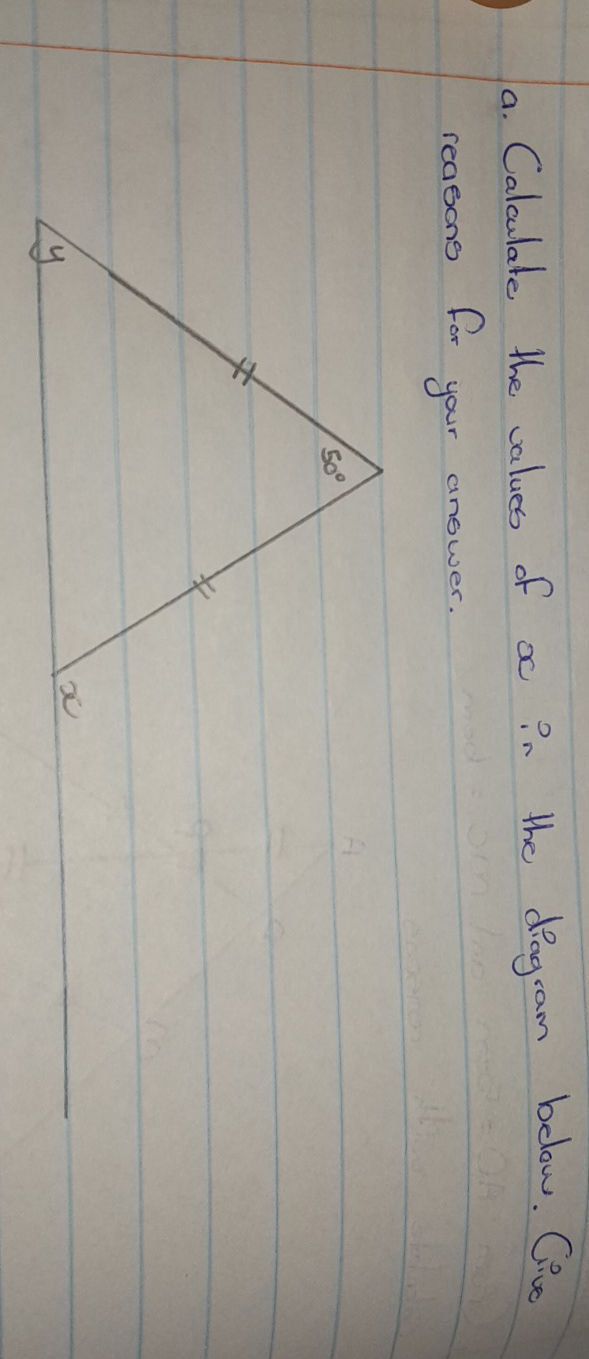 a. Calculate the values of x in the diagram below. Give
reasons for your answer.
50°
y
x